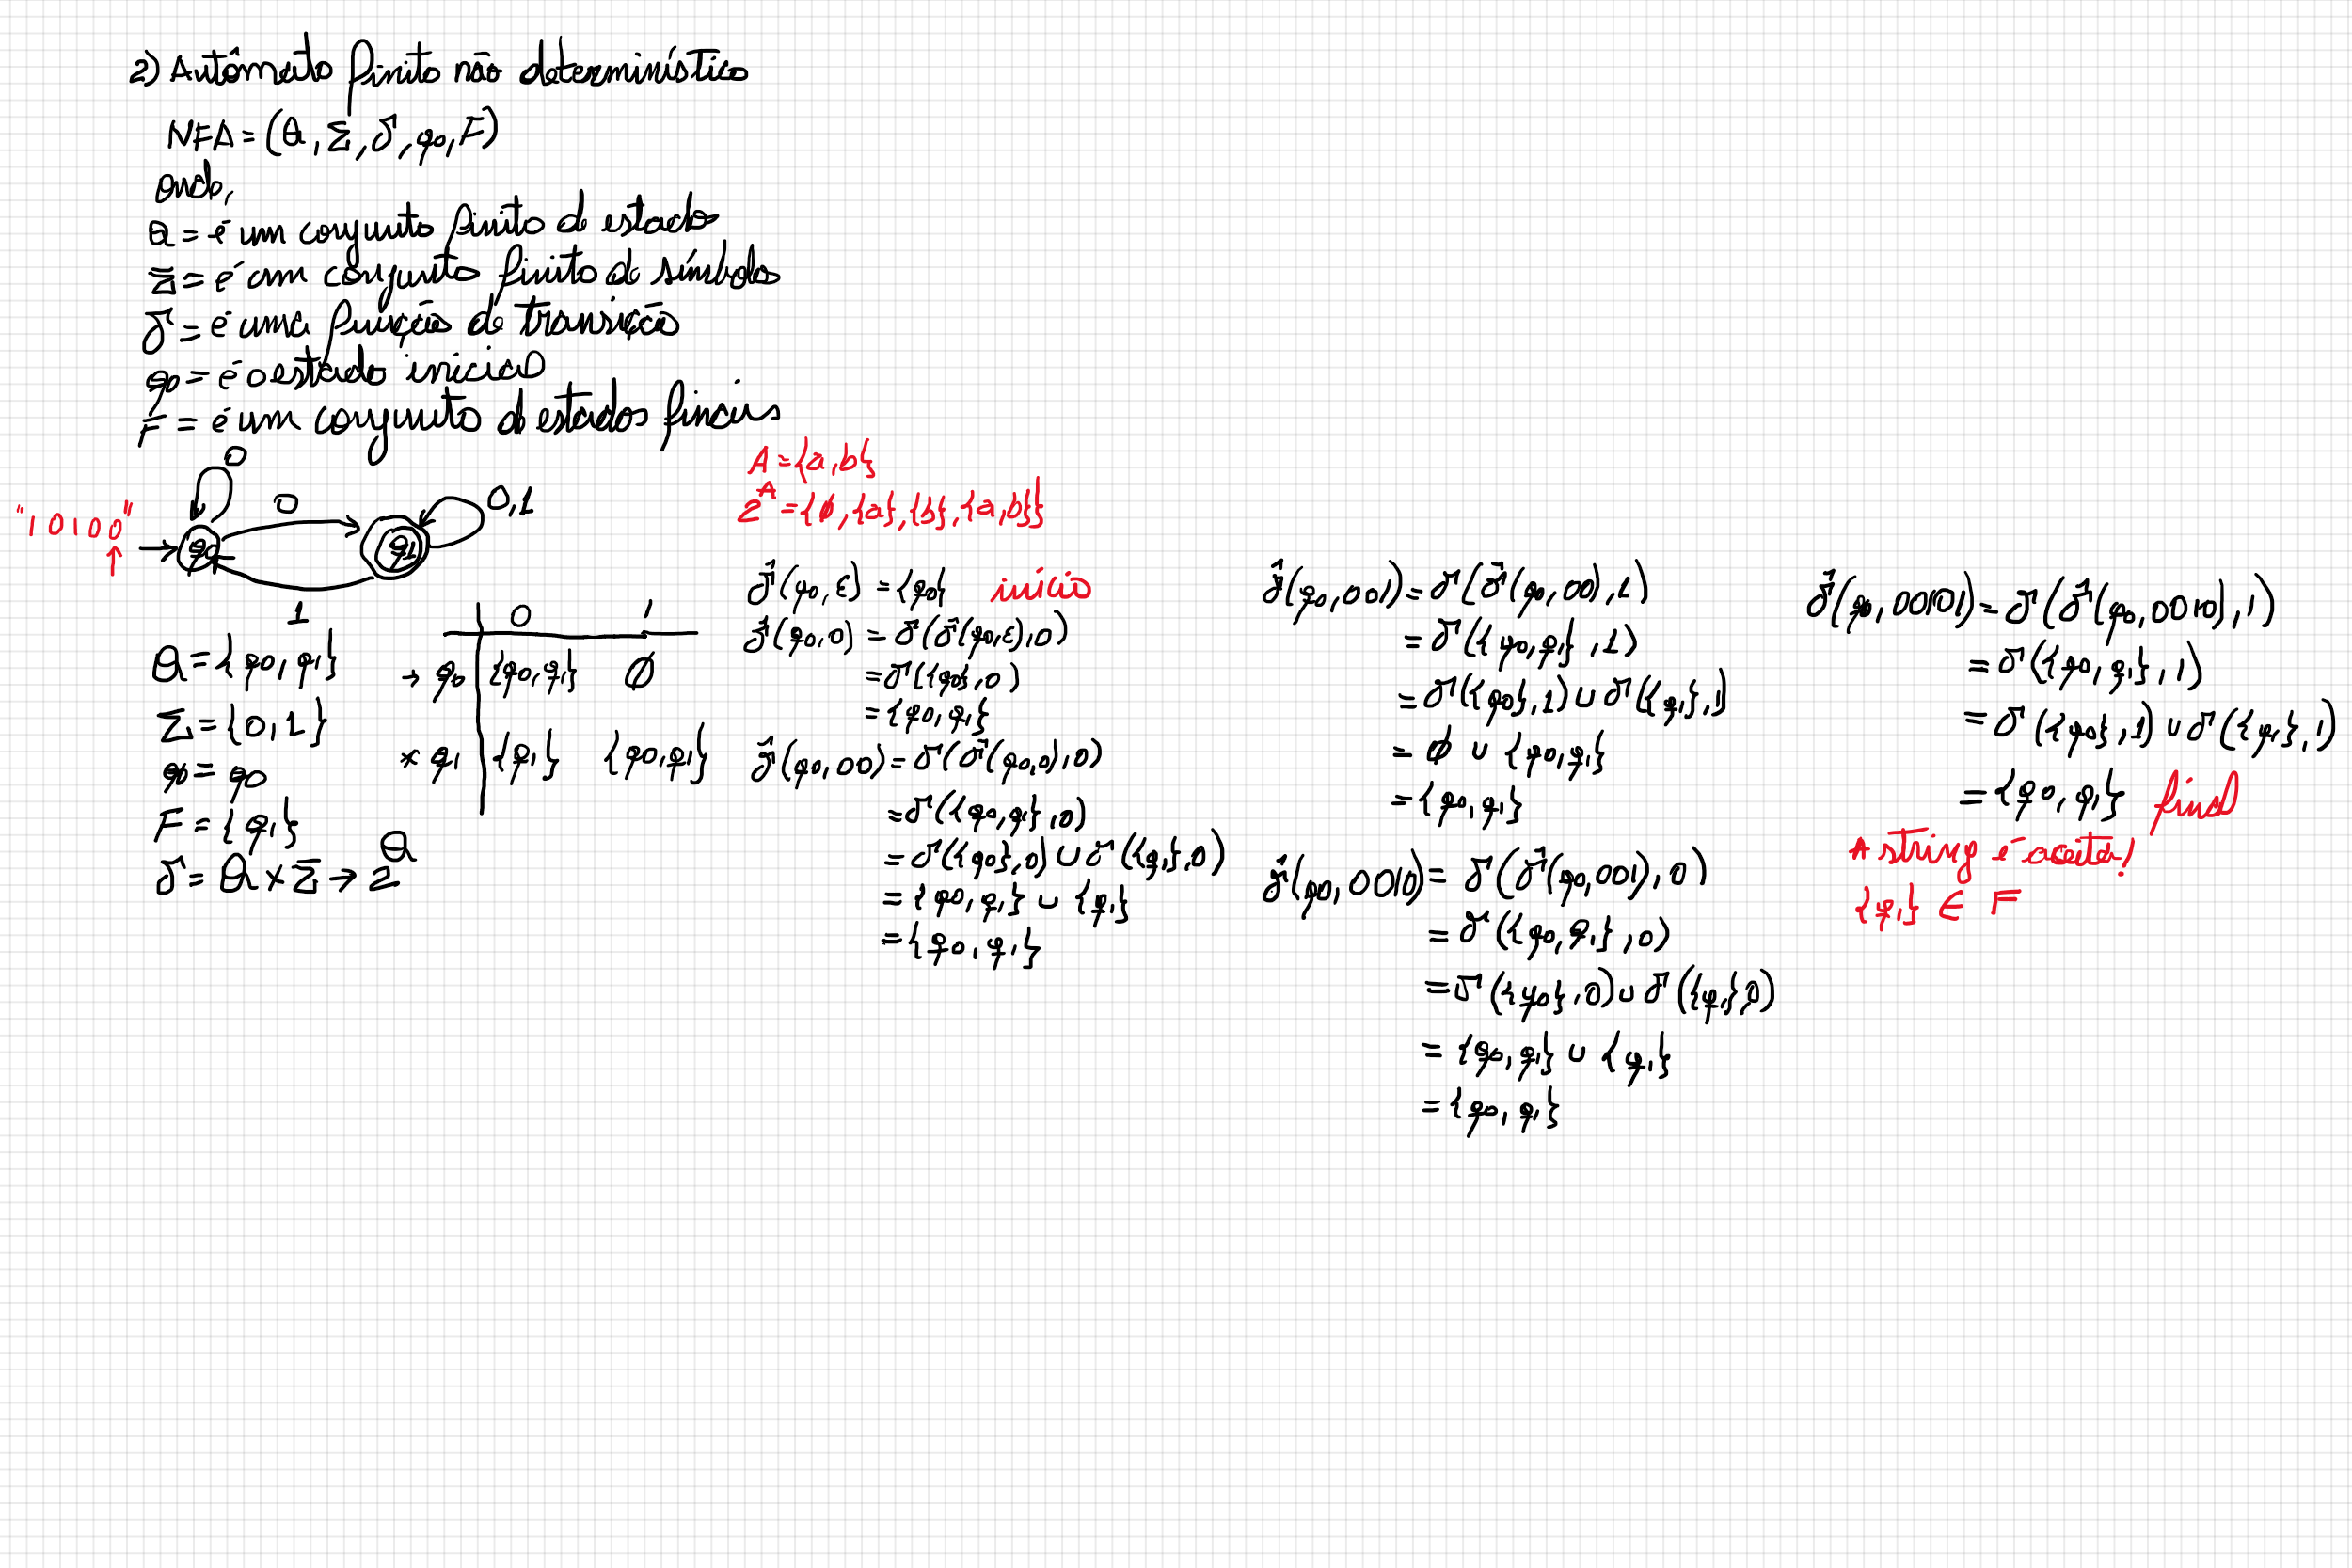 2) Autômato finito não determinístico
NFA = (Q, Σ, δ, q0, F)
onde,
Q = é um conjunto finito de estado
Σ = é um conjunto finito de símbolos
δ = é uma função de transição
q0 = é o estado inicial
F = é um conjunto de estados finais
0
0
0,1
"10100"
↑
→ q0
q1
1
Q = {q0, q1}
Σ = {0, 1}
q0 = q0
F = {q1}
δ = Q × Σ → 2^Q
0 1
→ q0 {q0, q1} ∅
* q1 {q1} {q0, q1}
A = {a, b}
2^A = {∅, {a}, {b}, {a, b}}
δ̂(q0, ε) = {q0} início
δ̂(q0, 0) = δ(δ̂(q0, ε), 0)
= δ({q0}, 0)
= {q0, q1}
δ̂(q0, 00) = δ(δ̂(q0, 0), 0)
= δ({q0, q1}, 0)
= δ({q0}, 0) ∪ δ({q1}, 0)
= {q0, q1} ∪ {q1}
= {q0, q1}
δ̂(q0, 001) = δ(δ̂(q0, 00), 1)
= δ({q0, q1}, 1)
= δ({q0}, 1) ∪ δ({q1}, 1)
= ∅ ∪ {q0, q1}
= {q0, q1}
δ̂(q0, 0010) = δ(δ̂(q0, 001), 0)
= δ({q0, q1}, 0)
= δ({q0}, 0) ∪ δ({q1}, 0)
= {q0, q1} ∪ {q1}
= {q0, q1}
δ̂(q0, 00101) = δ(δ̂(q0, 0010), 1)
= δ({q0, q1}, 1)
= δ({q0}, 1) ∪ δ({q1}, 1)
= {q0, q1} final
A string é aceita!
{q1} ∈ F